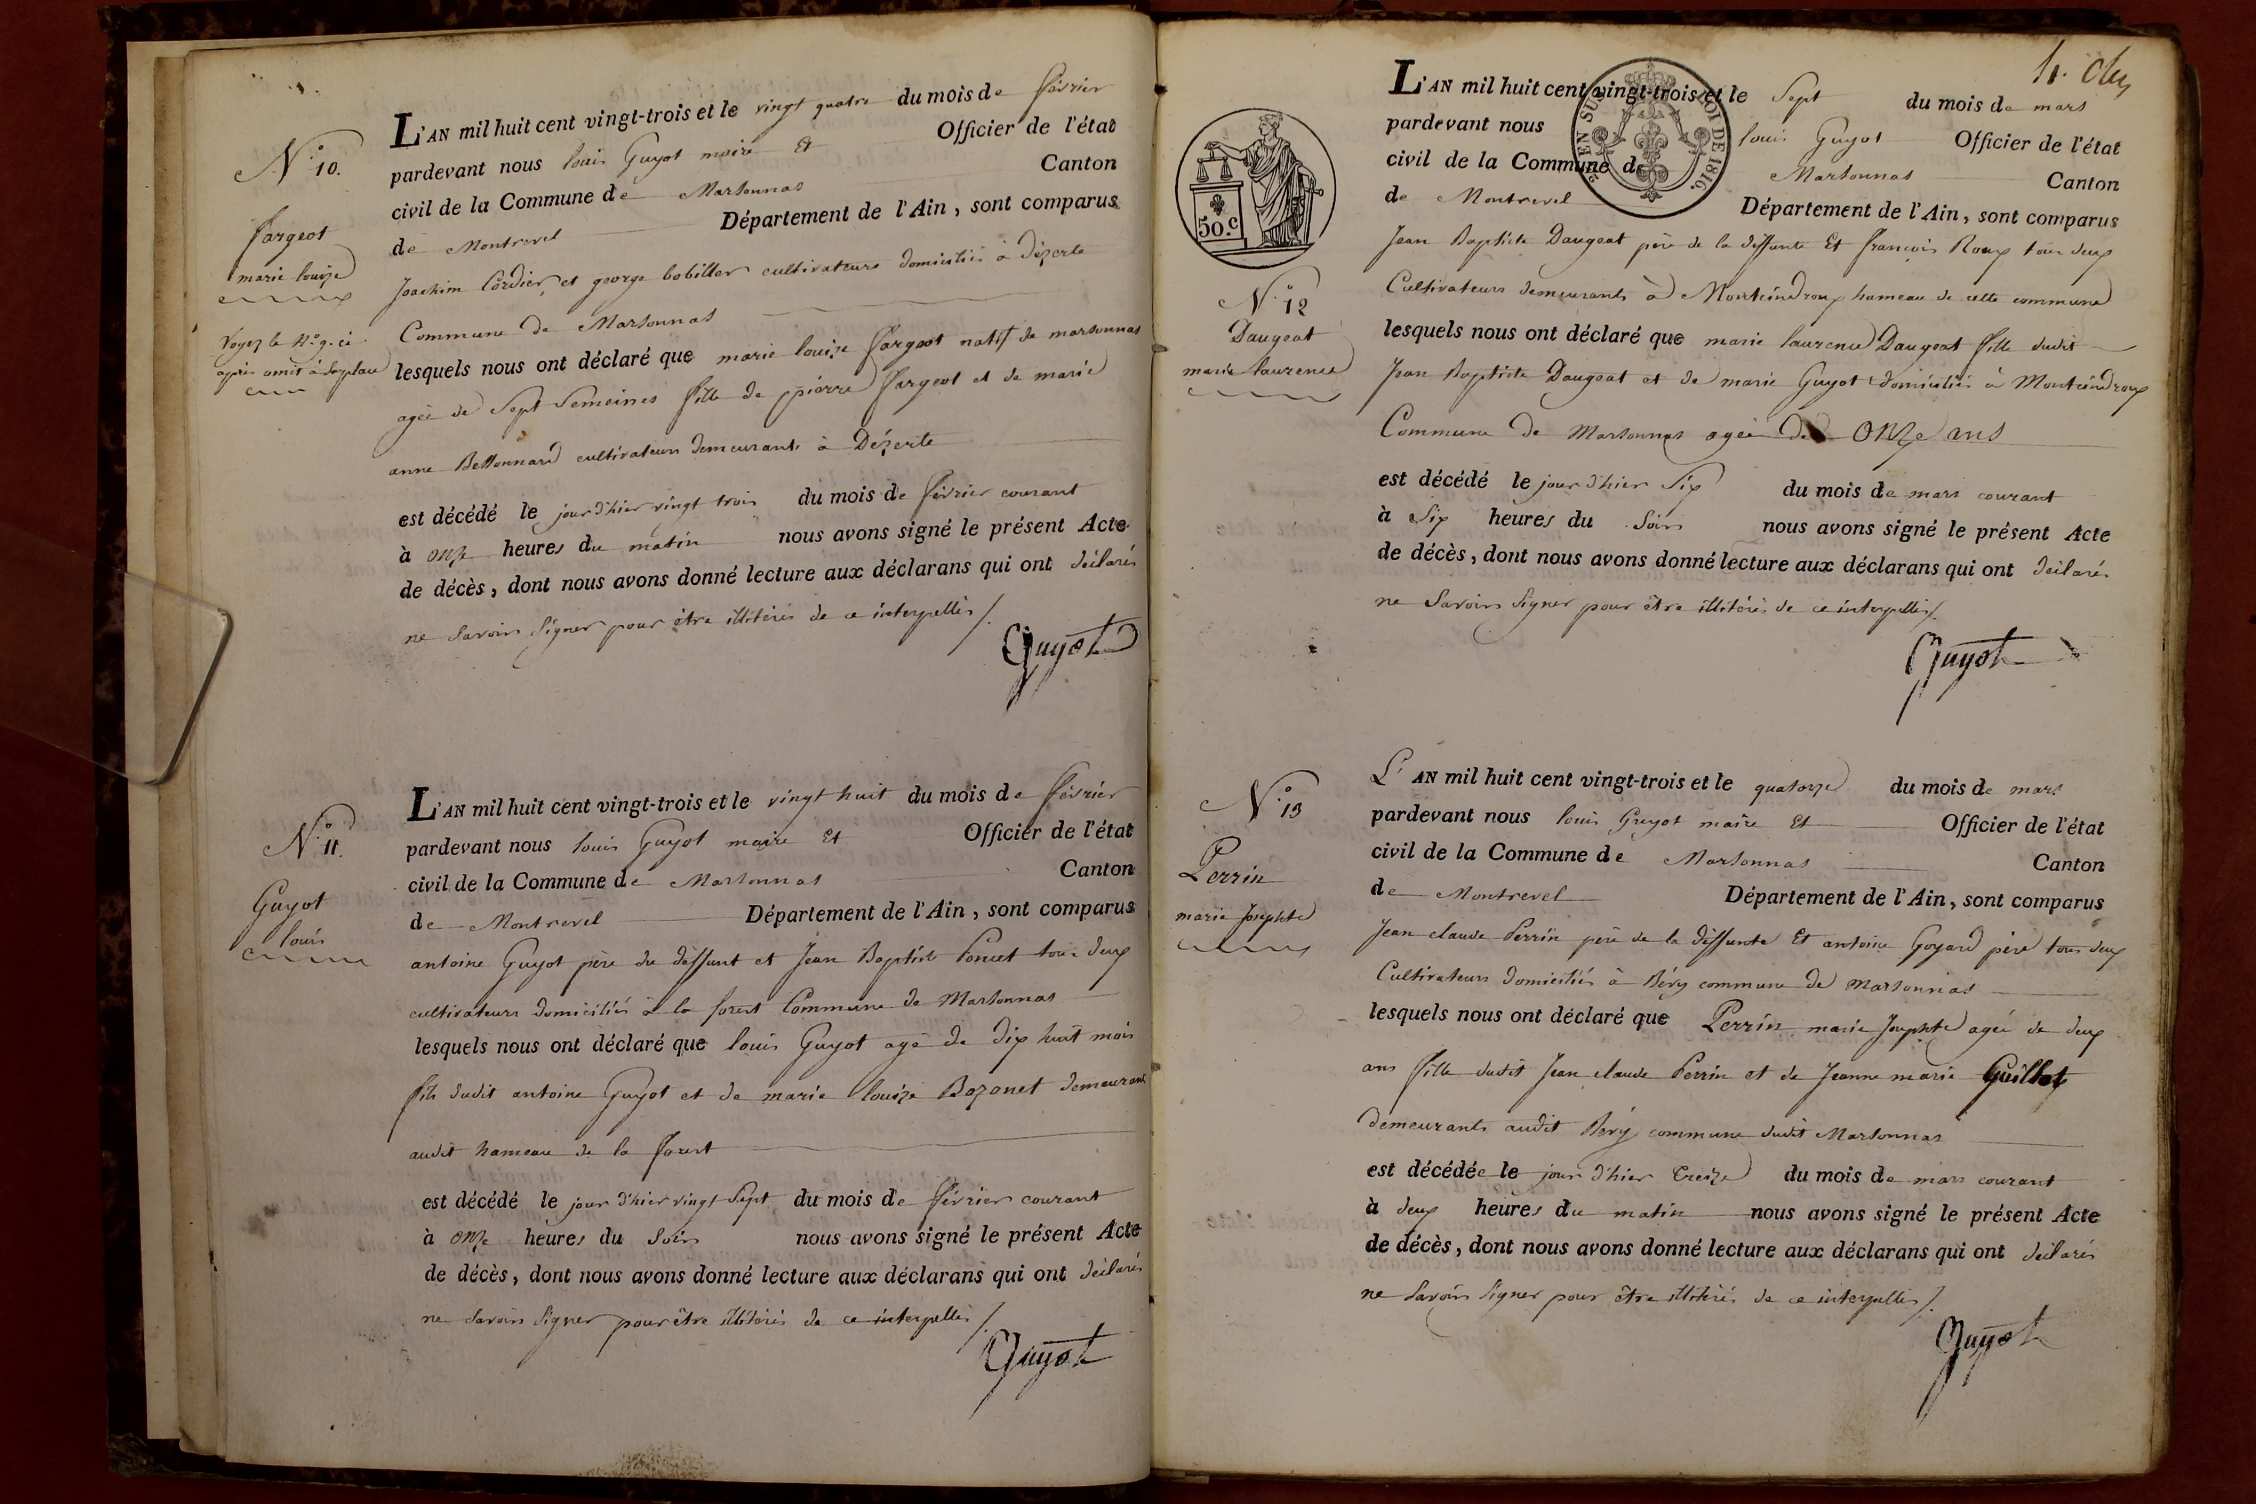 N.° 10.
Fargeot
marie louize
Voyez le N.° 9. ci
après omit à sa place
L'AN mil huit cent vingt-trois et le vingt quatre du mois de février
pardevant nous louis Guyot maire Et Officier de l'état
civil de la Commune de Marsonnas Canton
de Montrevel Département de l'Ain, sont comparus
Joachim Cordier et george bobillon cultivateurs domiciliés à Dézerte
Commune de Marsonnas
lesquels nous ont déclaré que marie louize fargeot natif de marsonnas
agée de Sept Semeines fille de pierre fargeot et de marie
anne Bettonnard cultivateurs demeurants à Dézerte
est décédé le jour d'hier vingt trois du mois de février courant
à onze heures du matin nous avons signé le présent Acte
de décès, dont nous avons donné lecture aux déclarans qui ont déclarés
ne Savoir Signer pour être illitérés de ce interpellés /.
Guyot
N.° 11.
Guyot
louis
L'AN mil huit cent vingt-trois et le vingt huit du mois de février
pardevant nous louis Guyot maire Et Officier de l'état
civil de la Commune de Marsonnas Canton
de Montrevel Département de l'Ain, sont comparus
antoine Guyot père du déffunt et Jean Baptiste Poncet tous deux
cultivateurs domiciliés à la forest Commune de Marsonnas
lesquels nous ont déclaré que louis Guyot agé de dix huit mois
fils dudit antoine Guyot et de marie louize Bozonet demeurant
audit hameau de la forest
est décédé le jour d'hier vingt Sept du mois de février courant
à onze heures du Soir nous avons signé le présent Acte
de décès, dont nous avons donné lecture aux déclarans qui ont déclarés
ne Savoir Signer pour être illitérés de ce interpellés /.
Guyot
50.c
EN SUS
LOI DE 1816.
N.° 12
Daugeat
marie laurence
L'AN mil huit cent vingt-trois et le Sept du mois de mars
pardevant nous louis Guyot Officier de l'état
civil de la Commune de Marsonnas Canton
de Montrevel Département de l'Ain, sont comparus
Jean Baptiste Daugeat père de la déffunte Et françois Roux tous deux
Cultivateurs demeurants à Montcindroux hameau de cette commune
lesquels nous ont déclaré que marie laurence Daugeat fille dudit
Jean Baptiste Daugeat et de marie Guyot domiciliés à Montcindroux
Commune de Marsonnas agée de onze ans
est décédé le jour d'hier Six du mois de mars courant
à Six heures du Soir nous avons signé le présent Acte
de décès, dont nous avons donné lecture aux déclarans qui ont déclarés
ne Savoir Signer pour être illitérés de ce interpellés /.
Guyot
N.° 13
Perrin
marie Josephte
L'AN mil huit cent vingt-trois et le quatorze du mois de mars
pardevant nous louis Guyot maire Et Officier de l'état
civil de la Commune de Marsonnas Canton
de Montrevel Département de l'Ain, sont comparus
Jean claude Perrin père de la déffunte Et antoine Goyard père tous deux
Cultivateurs domiciliés à Bévy commune de Marsonnas
lesquels nous ont déclaré que Perrin marie Josephte agée de deux
ans fille dudit Jean claude Perrin et de Jeanne marie Guillot
demeurants audit Bévy commune dudit Marsonnas
est décédée le jour d'hier treize du mois de mars courant
à deux heures du matin nous avons signé le présent Acte
de décès, dont nous avons donné lecture aux déclarans qui ont déclarés
ne Savoir Signer pour être illitérés de ce interpellés /.
Guyot